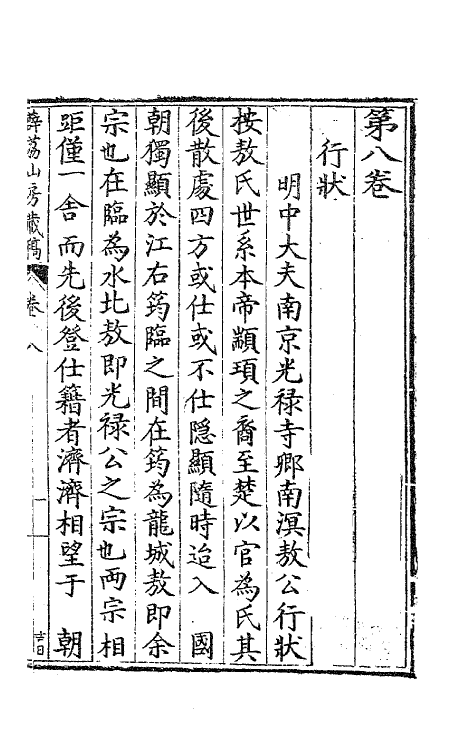 第八卷
行狀
明中大夫南京光禄寺卿南溟敖公行狀
按敖氏世系本帝顓頊之裔至楚以官為氏其
後散處四方或仕或不仕隱顯隨時迨入 國
朝獨顯於江右筠臨之間在筠為龍城敖即余
宗也在臨為水北敖即光禄公之宗也兩宗相
距僅一舍而先後登仕籍者濟濟相望于 朝
薜荔山房藏稿 卷八 一